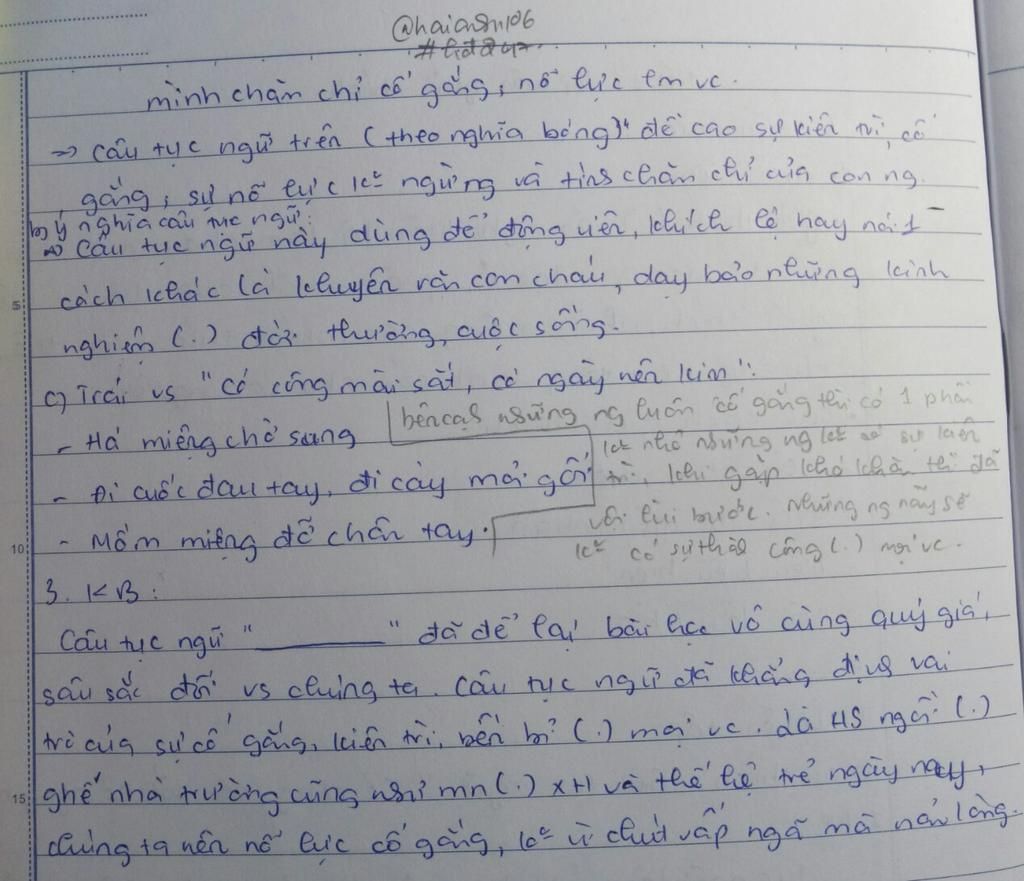 @haianh106
mình chăm chỉ cố gắng, nỗ lực trg vc.
=> Câu tục ngữ trên (theo nghĩa bóng) đề cao sự kiên trì, cố
gắng, sự nỗ lực k° ngừng và tính chăm chỉ của con ng.
b) Ý nghĩa câu tục ngữ:
=> Câu tục ngữ này dùng để động viên, khích lệ hay nói 1
cách khác là khuyên răn con cháu, dạy bảo những kinh
5
nghiệm (.) đời thường, cuộc sống.
c) Trái vs "Có công mài sắt, có ngày nên kim":
- Há miệng chờ sung
bên cạnh những ng luôn cố gắng thì có 1 phần
k° nhỏ những ng k° có sự kiên
- Đi cuốc đau tay, đi cày mỏi gối
trì, khi gặp khó khăn thì đã
vội lùi bước. Những ng này sẽ
- Mồm miệng đỡ chân tay.
10
k° có sự thành công (.) mọi vc.
3. KB:
Câu tục ngữ "______" đã để lại bài học vô cùng quý giá,
sâu sắc đối vs chúng ta. Câu tục ngữ đã khẳng định vai
trò của sự cố gắng, kiên trì, bền bỉ (.) mọi vc. Là HS ngồi (.)
15
ghế nhà trường cũng như mn (.) XH và thế hệ trẻ ngày nay,
chúng ta nên nỗ lực cố gắng, k° vì chút vấp ngã mà nản lòng.